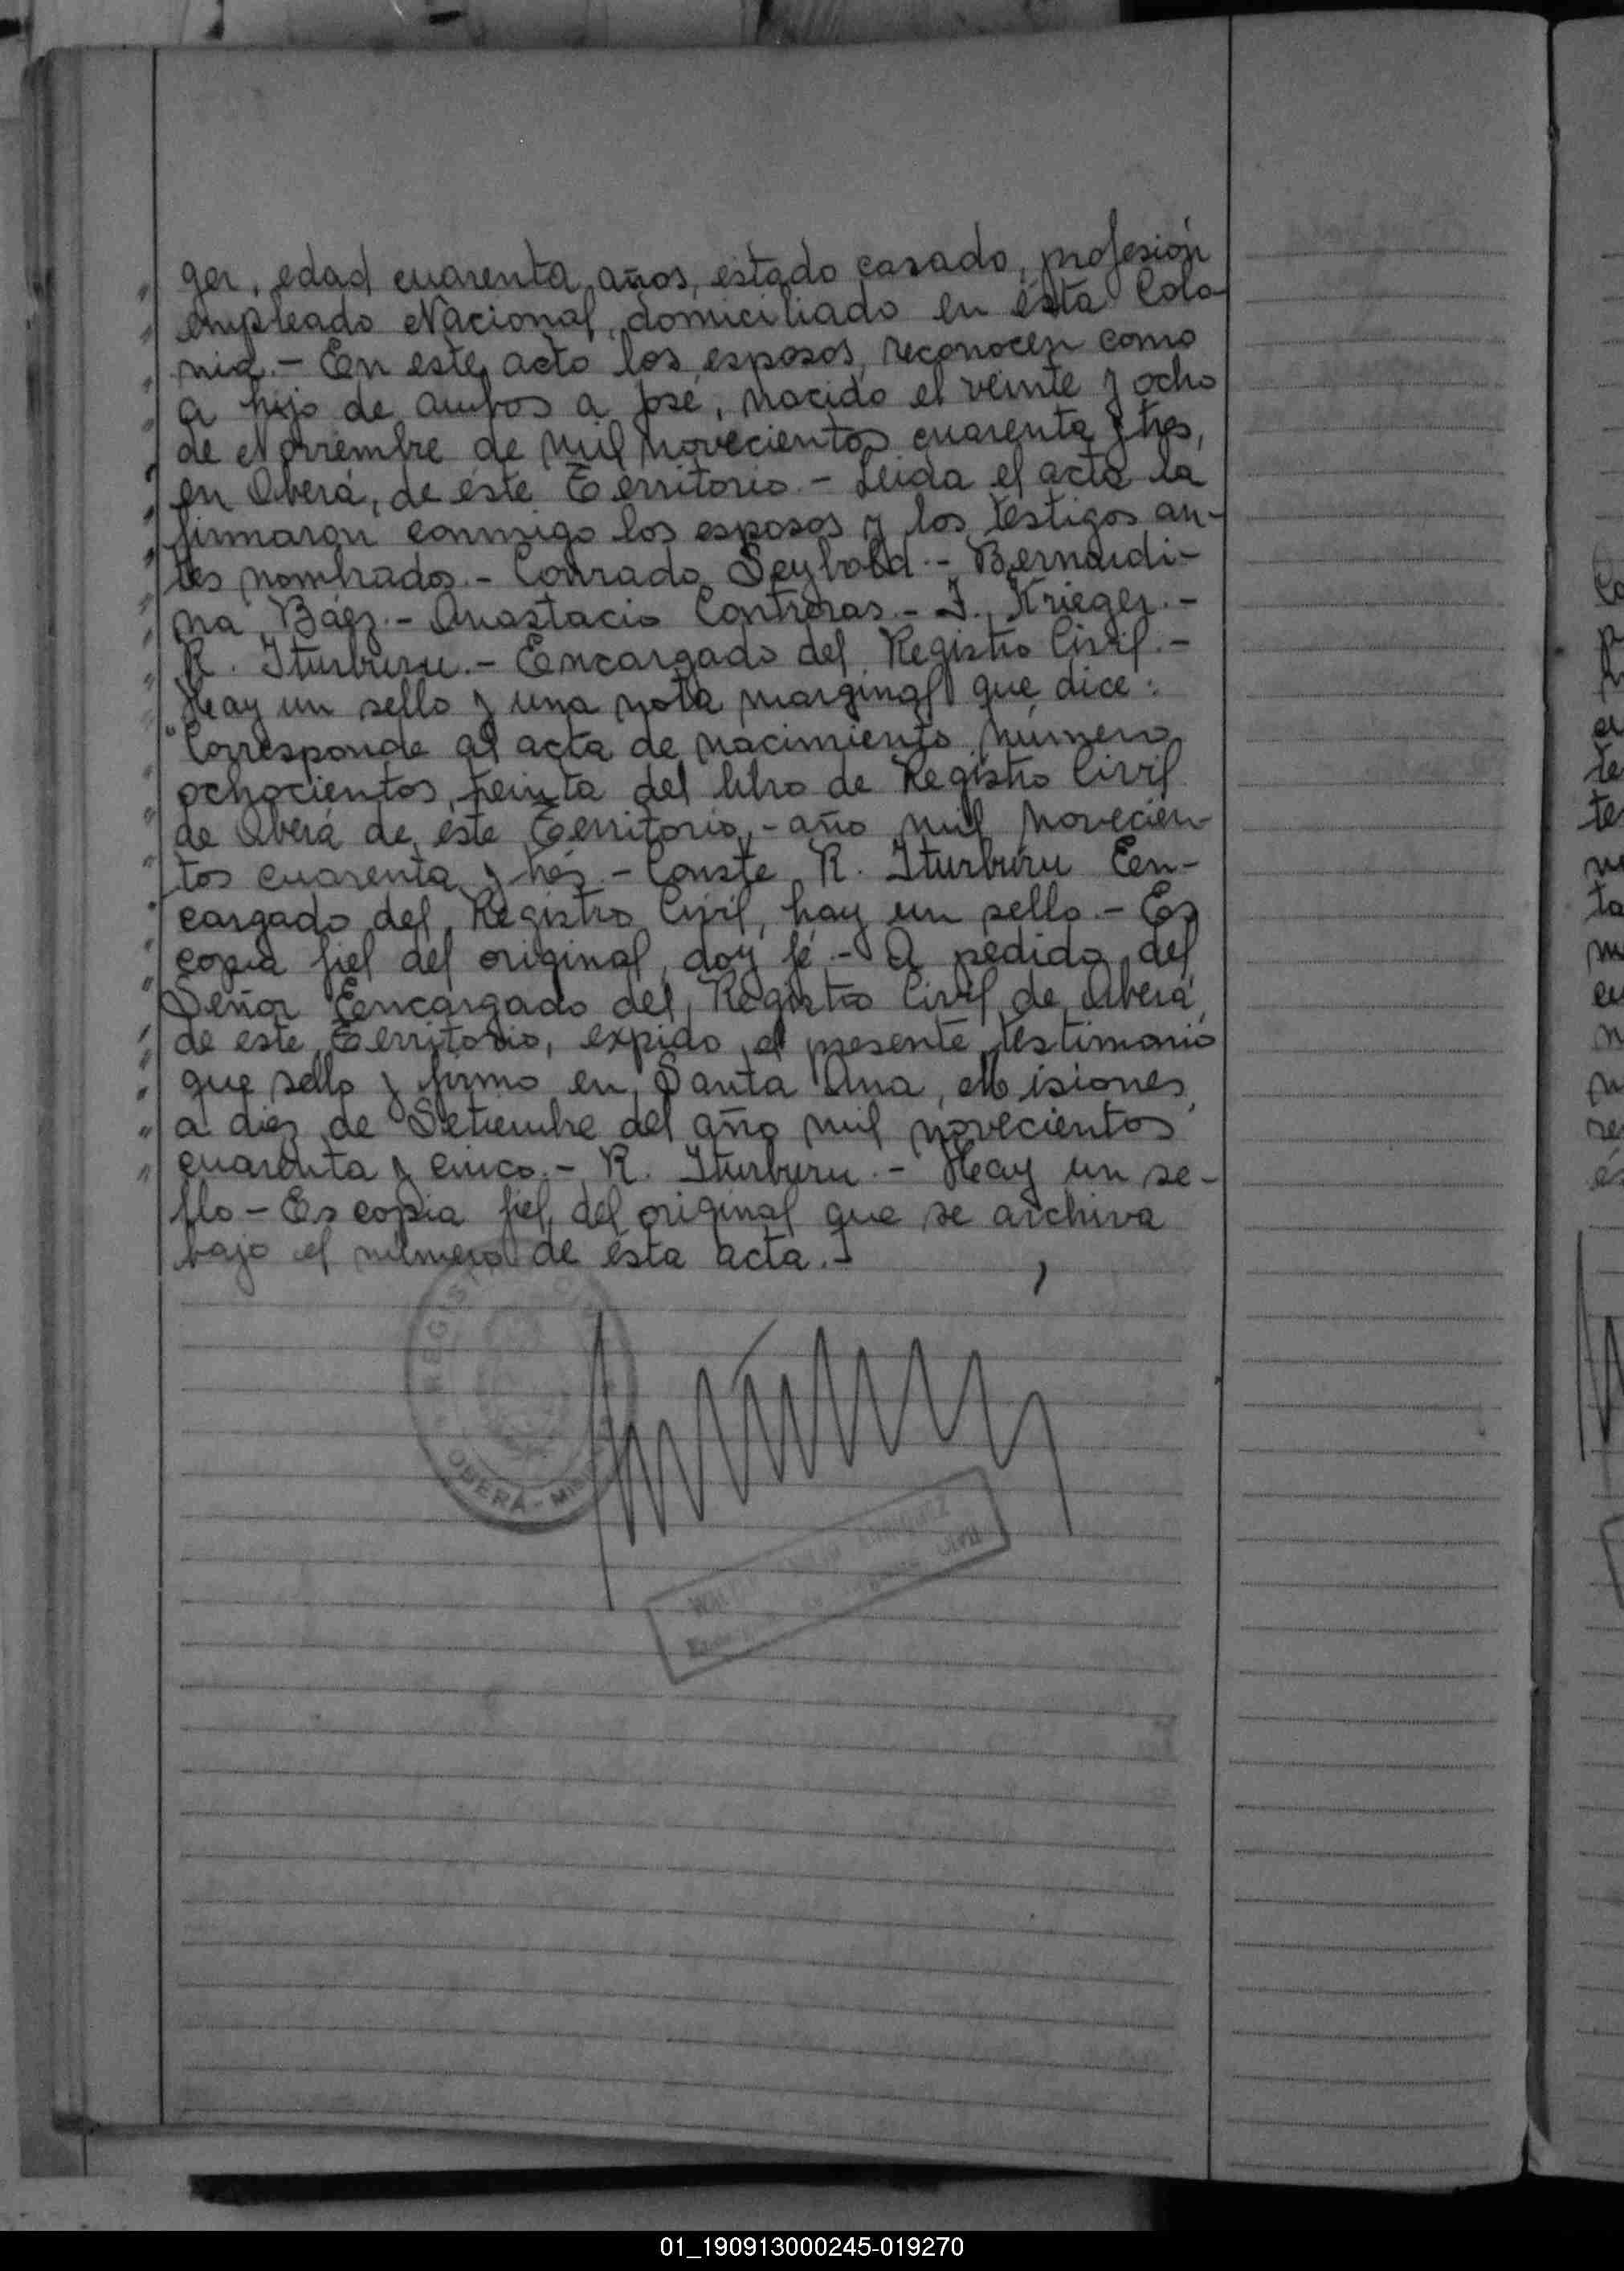 ger, edad cuarenta años, estado casado, profesión
empleado Nacional, domiciliado en ésta Colo-
nia.- En este acto los esposos, reconocen como
a hijo de ambos a José, nacido el veinte y ocho
de Noviembre de mil novecientos cuarenta y tres,
en Oberá, de éste Territorio.- Leida el acta la
firmaron conmigo los esposos y los testigos an-
tes nombrados.- Conrado Seybold.- Bernardi-
na Báez.- Anastacio Contreras.- J. Krieger.-
R. Iturburu.- Encargado del Registro Civil.-
Hay un sello y una nota marginal que dice:
"Corresponde al acta de nacimiento número
ochocientos treinta del libro de Registro Civil
de Oberá de éste Territorio,- año mil novecien-
tos cuarenta y tres.- Conste R. Iturburu En-
cargado del Registro Civil, hay un sello.- Es
copia fiel del original, doy fé.- A pedido del
Señor Encargado del Registro Civil de Oberá,
de este Territorio, expido el presente testimonio
que sello y firmo en Santa Ana, Misiones,
a diez de Setiembre del año mil novecientos
cuarenta y cinco.- R. Iturburu.- Hay un se-
llo - Es copia fiel del original que se archiva
bajo el número de ésta acta.-
OBERÁ - MIS
Civil
01_190913000245-019270